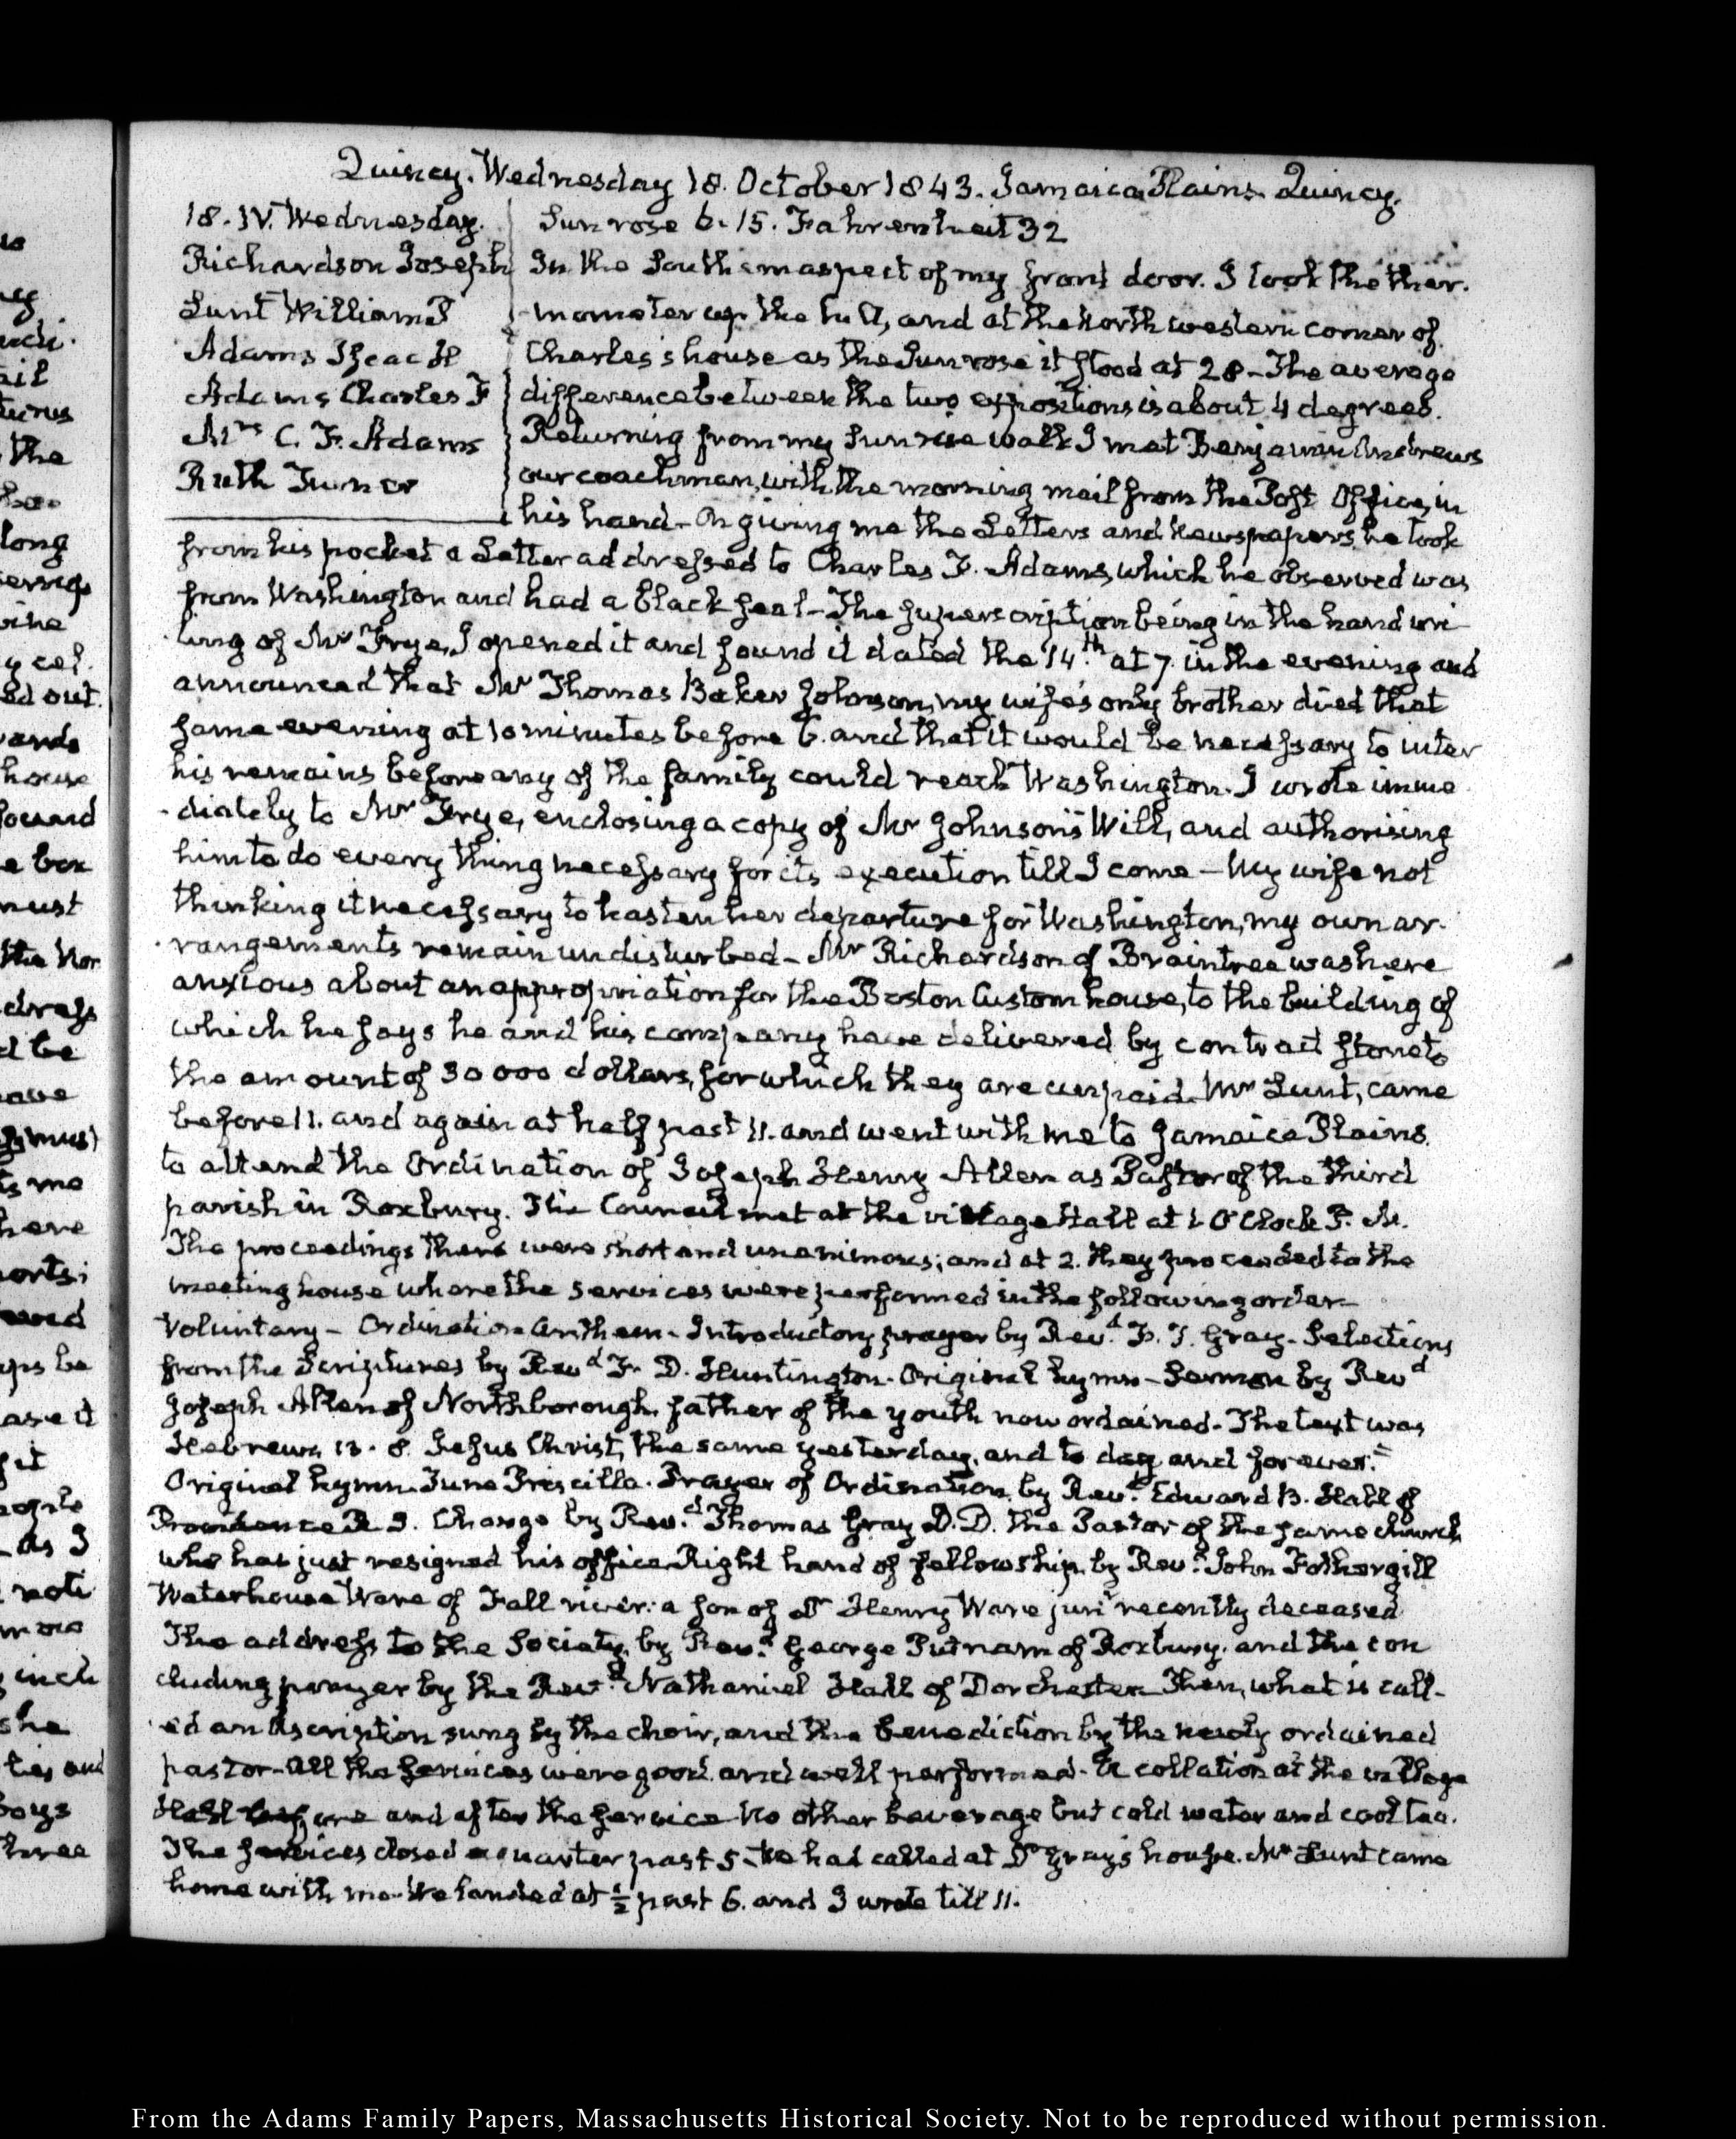 Quincy. Wednesday 18. October 1843. Jamaica Plains. Quincy.
18. IV. Wednesday. Sun rose 6. 15. Fahrenheit 32
Richardson Joseph
Lunt William P
Adams Isaac H
Adams Charles F
Mrs C. F. Adams
Ruth Turner
In the Southern aspect of my front door. I took the ther-
-mometer up the hill, and at the North western corner of
Charles's house as the Sun rose it stood at 28 - The average
difference between the two expositions is about 4 degrees.
Returning from my Sun rise walk I met Benjamin Andrews
our coachman, with the morning mail from the Post Office, in
his hand - On giving me the Letters and Newspapers, he took
from his pocket a Letter addressed to Charles F. Adams, which he observed was
from Washington and had a black seal - The superscription being in the hand wri-
ting of Mr Frye, I opened it and found it dated the 14th at 7. in the evening and
announced that Mr Thomas Baker Johnson, my wife's only brother died that
same evening at 10 minutes before 6. and that it would be necessary to inter
his remains before any of the family could reach Washington. I wrote imme
-diately to Mr Frye, enclosing a copy of Mr Johnson's Will, and authorising
him to do every thing necessary for its execution till I come - My wife not
thinking it necessary to hasten her departure for Washington, my own ar-
-rangements remain undisturbed - Mr Richardson of Braintree was here
anxious about an appropriation for the Boston Custom house, to the building of
which he says he and his company have delivered by contract stone to
the amount of 30 000 dollars, for which they are unpaid. Mr Lunt, came
before 11. and again at half past 11. and went with me to Jamaica Plains.
to attend the Ordination of Joseph Henry Allen as Pastor of the third
parish in Roxbury. The Council met at the village Hall at 1 O'Clock P. M.
The proceedings there were short and unanimous; and at 2. they proceeded to the
meeting house where the services were performed in the following order
Voluntary - Ordination Anthem - Introductory prayer by Revd. F. T. Gray - Selections
from the Scriptures by Revd F. D. Huntington. Original hymn - Sermon by Revd
Joseph Allen of Northborough, father of the youth now ordained - The text was
Hebrews 13. 8. Jesus Christ, the same yesterday, and to day and forever."
Original hymn. Tune Priscilla. Prayer of Ordination, by Revd. Edward B. Hall of
Providence R. I. Charge by Revd. Thomas Gray D.D. the Pastor of the same church
who has just resigned his office. Right hand of fellowship, by Revd. John Fothergill
Waterhouse Ware of Fall river: a son of Dr Henry Ware junr recently deceased
The address to the Society, by Revd. George Putnam of Roxbury. and the con
cluding prayer by the Revd. Nathaniel Hall of Dorchester. Then, what is call-
-ed an Ascription sung by the choir, and the benediction by the newly ordained
pastor - All the services were good and well performed - A collation at the village
Hall before and after the service No other beverage but cold water and cool tea.
The services closed a quarter past 5. We had called at Dr Gray's house. Mr Lunt came
home with me. We landed at ½ past 6. and I wrote till 11.
From the Adams Family Papers, Massachusetts Historical Society. Not to be reproduced without permission.